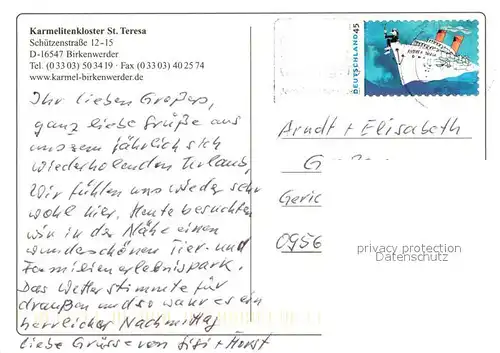 Karmelitenkloster St. Teresa
Schützenstraße 12-15
D-16547 Birkenwerder
Tel. (0 33 03) 50 34 19 · Fax (0 33 03) 40 25 74
www.karmel-birkenwerder.de
Ihr lieben Großers,
ganz liebe Grüße aus
unserem jährlich sich
wiederholenden Urlaub,
Wir fühlen uns wieder sehr
wohl hier. Heute besuchten
wir in der Nähe einen
wunderschönen Tier- und
Familienerlebnispark.
Das Wetter stimmte für
draußen und so war es ein
herrlicher Nachmittag
Liebe Grüsse von Sisi + Horst
DEUTSCHLAND 45
Arndt + Elisabeth
Geric
0956
privacy protection
Datenschutz